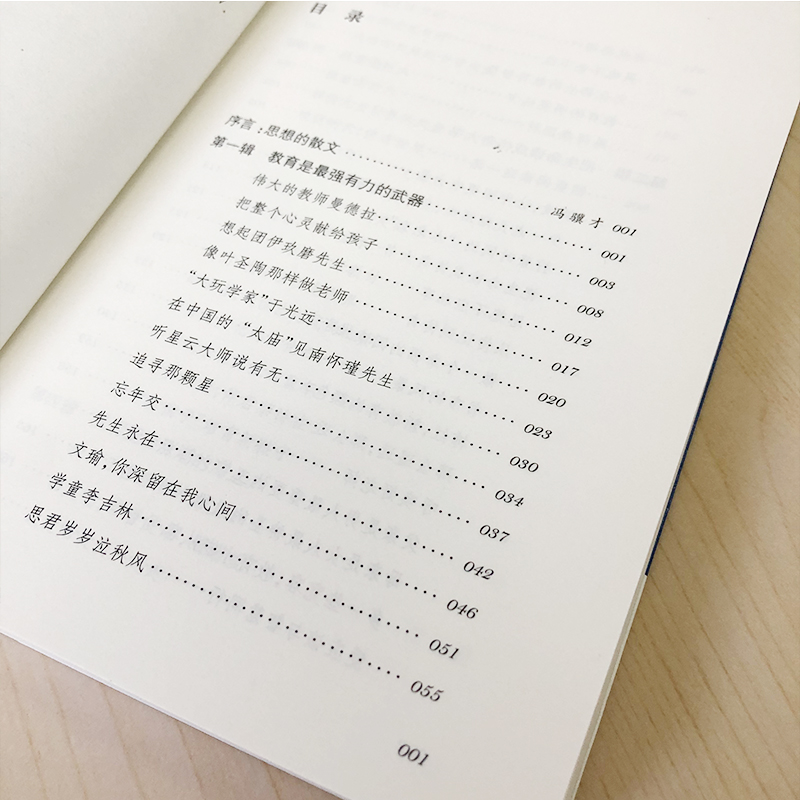 目 录
序言：思想的散文 …………………… 冯骥才 001
第一辑 教育是最强有力的武器 …………………… 001
伟大的教师曼德拉 …………………… 003
把整个心灵献给孩子 …………………… 008
想起团伊玖磨先生 …………………… 012
像叶圣陶那样做老师 …………………… 017
“大玩学家”于光远 …………………… 020
在中国的“太庙”见南怀瑾先生 …………………… 023
听星云大师说有无 …………………… 030
追寻那颗星 …………………… 034
忘年交 …………………… 037
先生永在 …………………… 042
文瑜，你深留在我心间 …………………… 046
学童李吉林 …………………… 051
思君岁岁泣秋风 …………………… 055
001